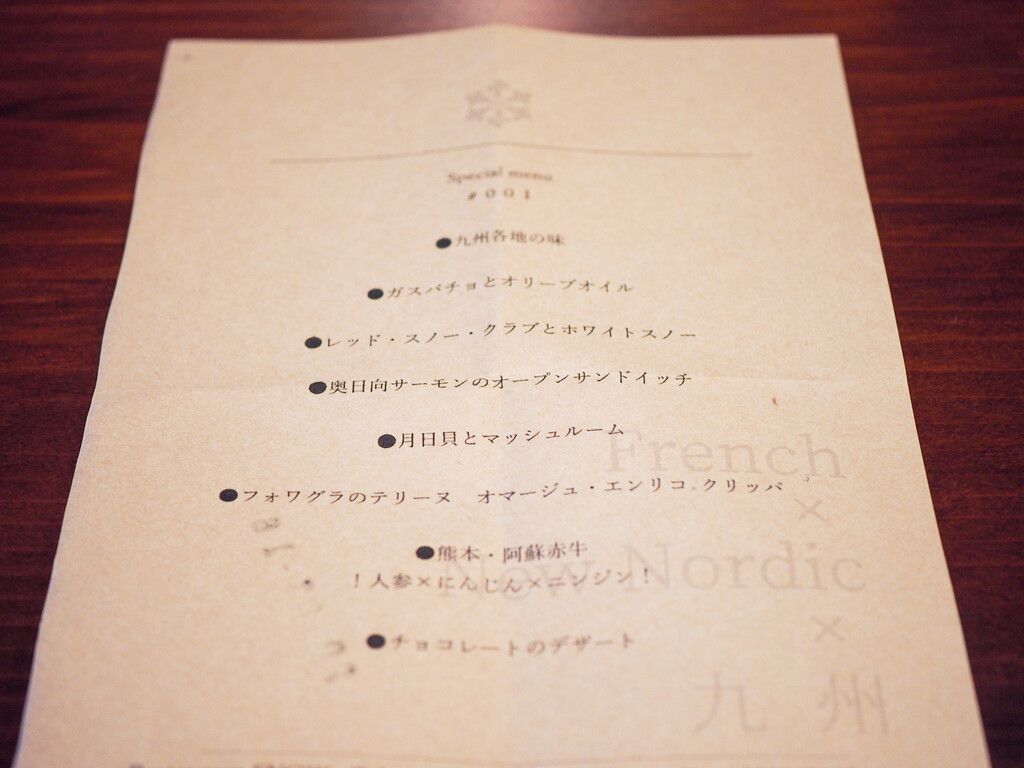 Special menu
#001
●九州各地の味
●ガスパチョとオリーブオイル
●レッド・スノー・クラブとホワイトスノー
●奥日向サーモンのオープンサンドイッチ
●月日貝とマッシュルーム
French
●フォワグラのテリーヌ　オマージュ・エンリコ.クリッパ
×
●熊本・阿蘇赤牛
New Nordic
！人参×にんじん×ニンジン！
×
●チョコレートのデザート
九州